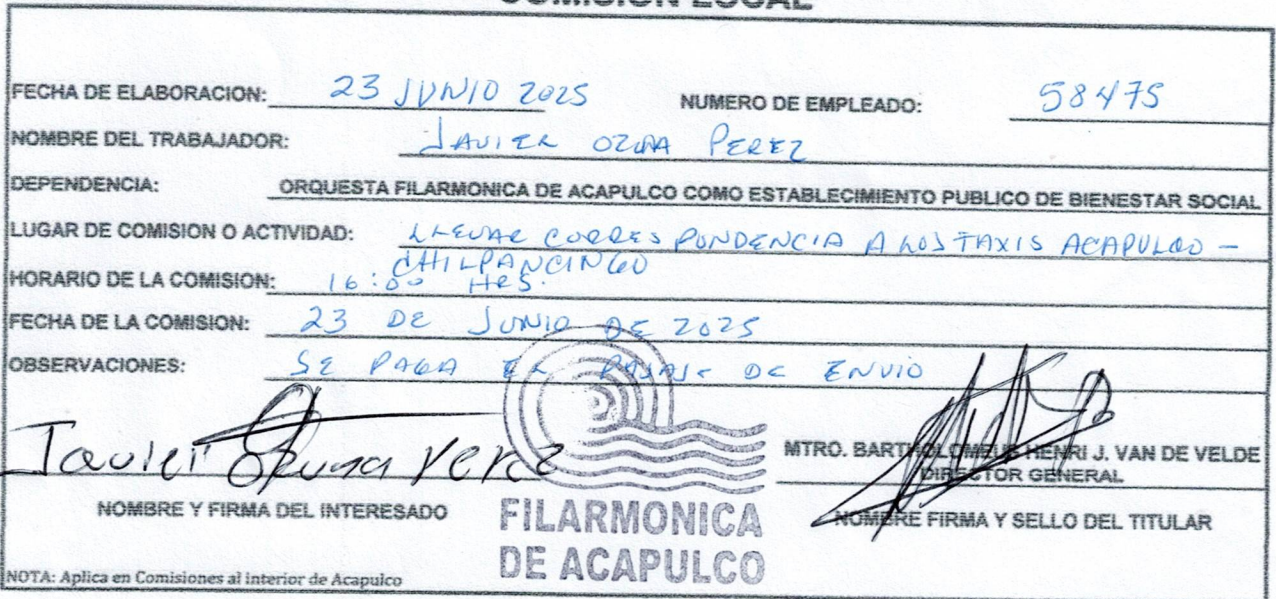 COMISION LOCAL
FECHA DE ELABORACION: 23 JUNIO 2025 NUMERO DE EMPLEADO: 58475
NOMBRE DEL TRABAJADOR: JAVIER OZUNA PEREZ
DEPENDENCIA: ORQUESTA FILARMONICA DE ACAPULCO COMO ESTABLECIMIENTO PUBLICO DE BIENESTAR SOCIAL
LUGAR DE COMISION O ACTIVIDAD: LLEVAR CORRESPONDENCIA A LOS TAXIS ACAPULCO -
CHILPANCINGO
HORARIO DE LA COMISION: 16:00 HRS.
FECHA DE LA COMISION: 23 DE JUNIO DE 2025
OBSERVACIONES: SE PAGA EL PASAJE DE ENVIO
Javier Ozuna Perez
MTRO. BARTHOLOMEUS HENRI J. VAN DE VELDE
DIRECTOR GENERAL
NOMBRE Y FIRMA DEL INTERESADO
NOMBRE FIRMA Y SELLO DEL TITULAR
FILARMONICA
DE ACAPULCO
NOTA: Aplica en Comisiones al interior de Acapulco